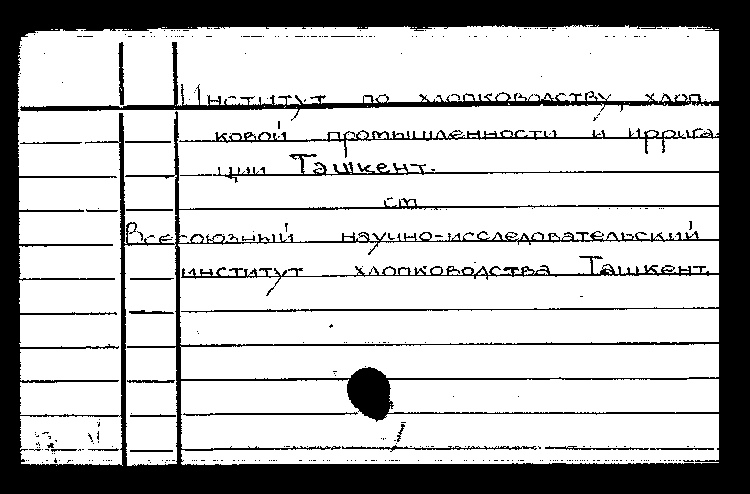 Институт по хлопководству, хлоп
ковой промышленности и ирига-
ции Ташкент.
см
Всесоюзный научно-исследовательский
институт хлопководства Ташкент.